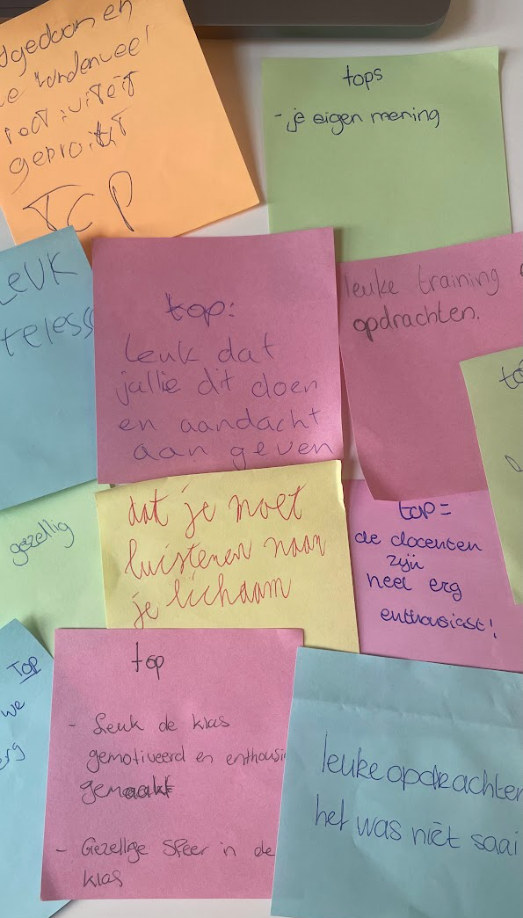 gedoen en
e
geprikt
TOP
tops
- je eigen mening
LEUK
teless
top:
Leuk dat
jullie dit doen
en aandacht
aan geven
leuke training
opdrachten.
to
gezellig
dat je moet
luisteren naar
je lichaam
top=
de docenten
zijn
heel erg
enthousiast!
TOP
we
erg
top
- Leuk de klas
gemotiveerd en enthousi
gemaakt
- Gezellige sfeer in de
klas
leuke opdrachten
het was niet saai